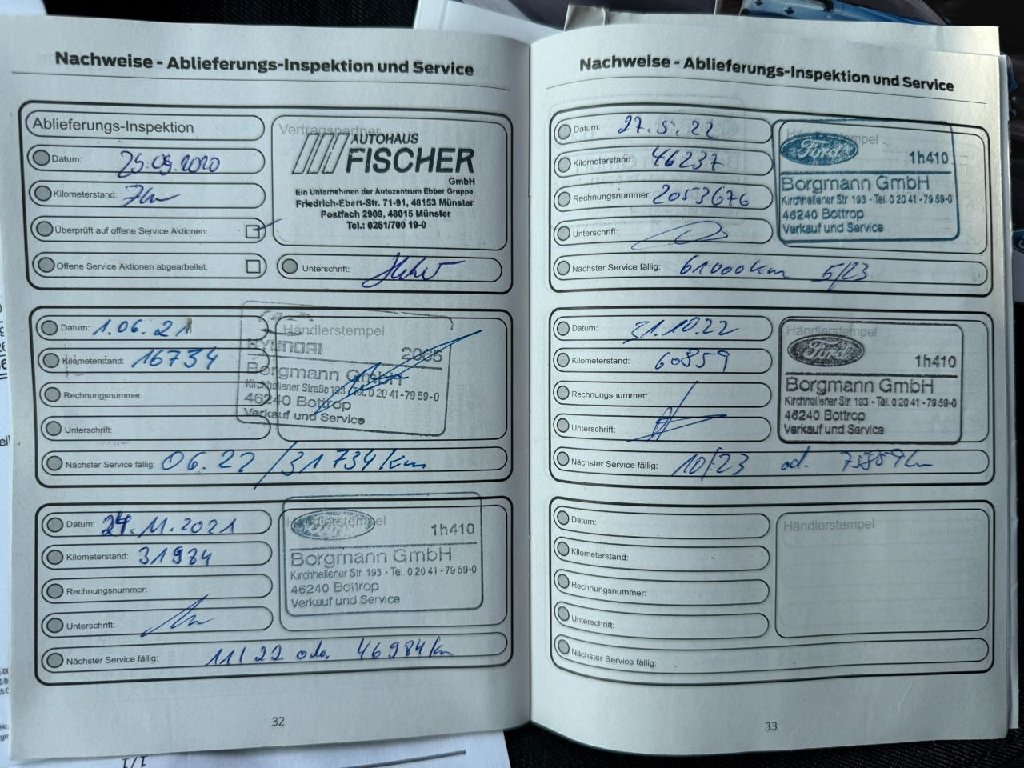 Nachweise - Ablieferungs-Inspektion und Service
Ablieferungs-Inspektion
Datum: 25.09.2020
Kilometerstand: 7km
Überprüft auf offene Service Aktionen:
Offene Service Aktionen abgearbeitet:
Vertragspartner
AUTOHAUS
FISCHER
GmbH
Ein Unternehmen der Autozentrum Ebber Gruppe
Friedrich-Ebert-Str. 71-91, 48153 Münster
Postfach 2908, 48015 Münster
Tel.: 0251/700 19-0
Unterschrift:
Datum: 1.06.21
Kilometerstand: 16734
Rechnungsnummer:
Unterschrift:
Händlerstempel
HYUNDAI 2005
Borgmann GmbH
Kirchhellener Straße 193 Tel. 0 20 41-79 59-0
46240 Bottrop
Verkauf und Service
Nächster Service fällig: 06.22 / 31734km
Datum: 24.11.2021
Kilometerstand: 31984
Rechnungsnummer:
Unterschrift:
Händlerstempel
Ford 1h410
Borgmann GmbH
Kirchhellener Str. 193 - Tel. 0 20 41 - 79 59-0
46240 Bottrop
Verkauf und Service
Nächster Service fällig: 11/22 oder 46984km
32
Nachweise - Ablieferungs-Inspektion und Service
Datum: 27.5.22
Kilometerstand: 46237
Rechnungsnummer: 2053676
Unterschrift:
Händlerstempel
Ford 1h410
Borgmann GmbH
Kirchhellener Str. 193 - Tel. 0 20 41 - 79 59-0
46240 Bottrop
Verkauf und Service
Nächster Service fällig: 61000km 5/23
Datum: 31.10.22
Kilometerstand: 60859
Rechnungsnummer:
Unterschrift:
Händlerstempel
Ford 1h410
Borgmann GmbH
Kirchhellener Str. 193 - Tel. 0 20 41 - 79 59-0
46240 Bottrop
Verkauf und Service
Nächster Service fällig: 10/23 od. 75859km
Datum:
Kilometerstand:
Rechnungsnummer:
Unterschrift:
Händlerstempel
Nächster Service fällig:
33